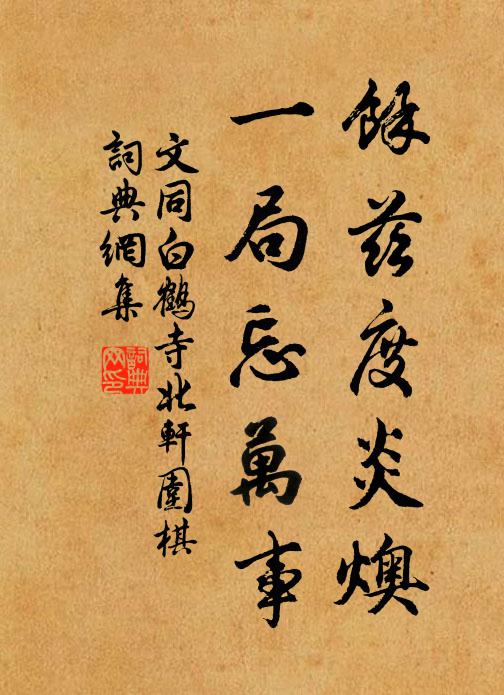 餘茲度炎燠
一局忘萬事
文同白鶴寺北軒圍棋
詞典網集
詞典網印